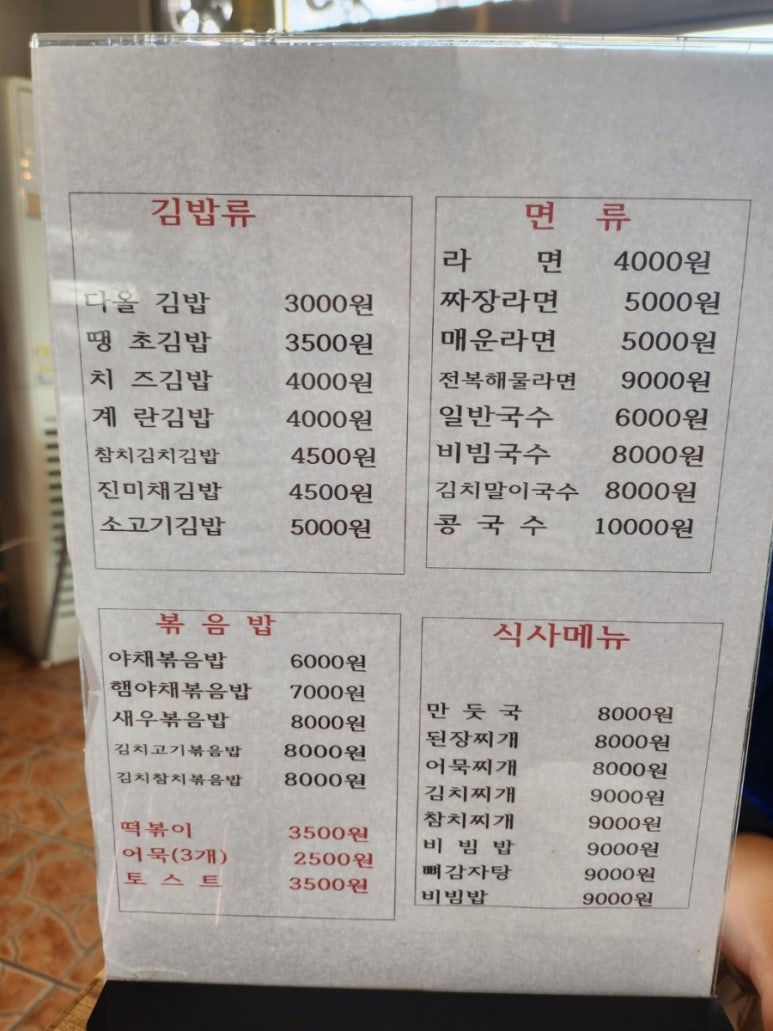 김밥류
다올 김밥 3000원
땡 초김밥 3500원
치 즈김밥 4000원
계 란김밥 4000원
참치김치김밥 4500원
진미채김밥 4500원
소고기김밥 5000원
면 류
라 면 4000원
짜장라면 5000원
매운라면 5000원
전복해물라면 9000원
일반국수 6000원
비빔국수 8000원
김치말이국수 8000원
콩 국 수 10000원
볶 음 밥
야채볶음밥 6000원
햄야채볶음밥 7000원
새우볶음밥 8000원
김치고기볶음밥 8000원
김치참치볶음밥 8000원
떡볶이 3500원
어묵(3개) 2500원
토 스 트 3500원
식사메뉴
만 둣 국 8000원
된장찌개 8000원
어묵찌개 8000원
김치찌개 9000원
참치찌개 9000원
비 빔 밥 9000원
뼈감자탕 9000원
비빔밥 9000원